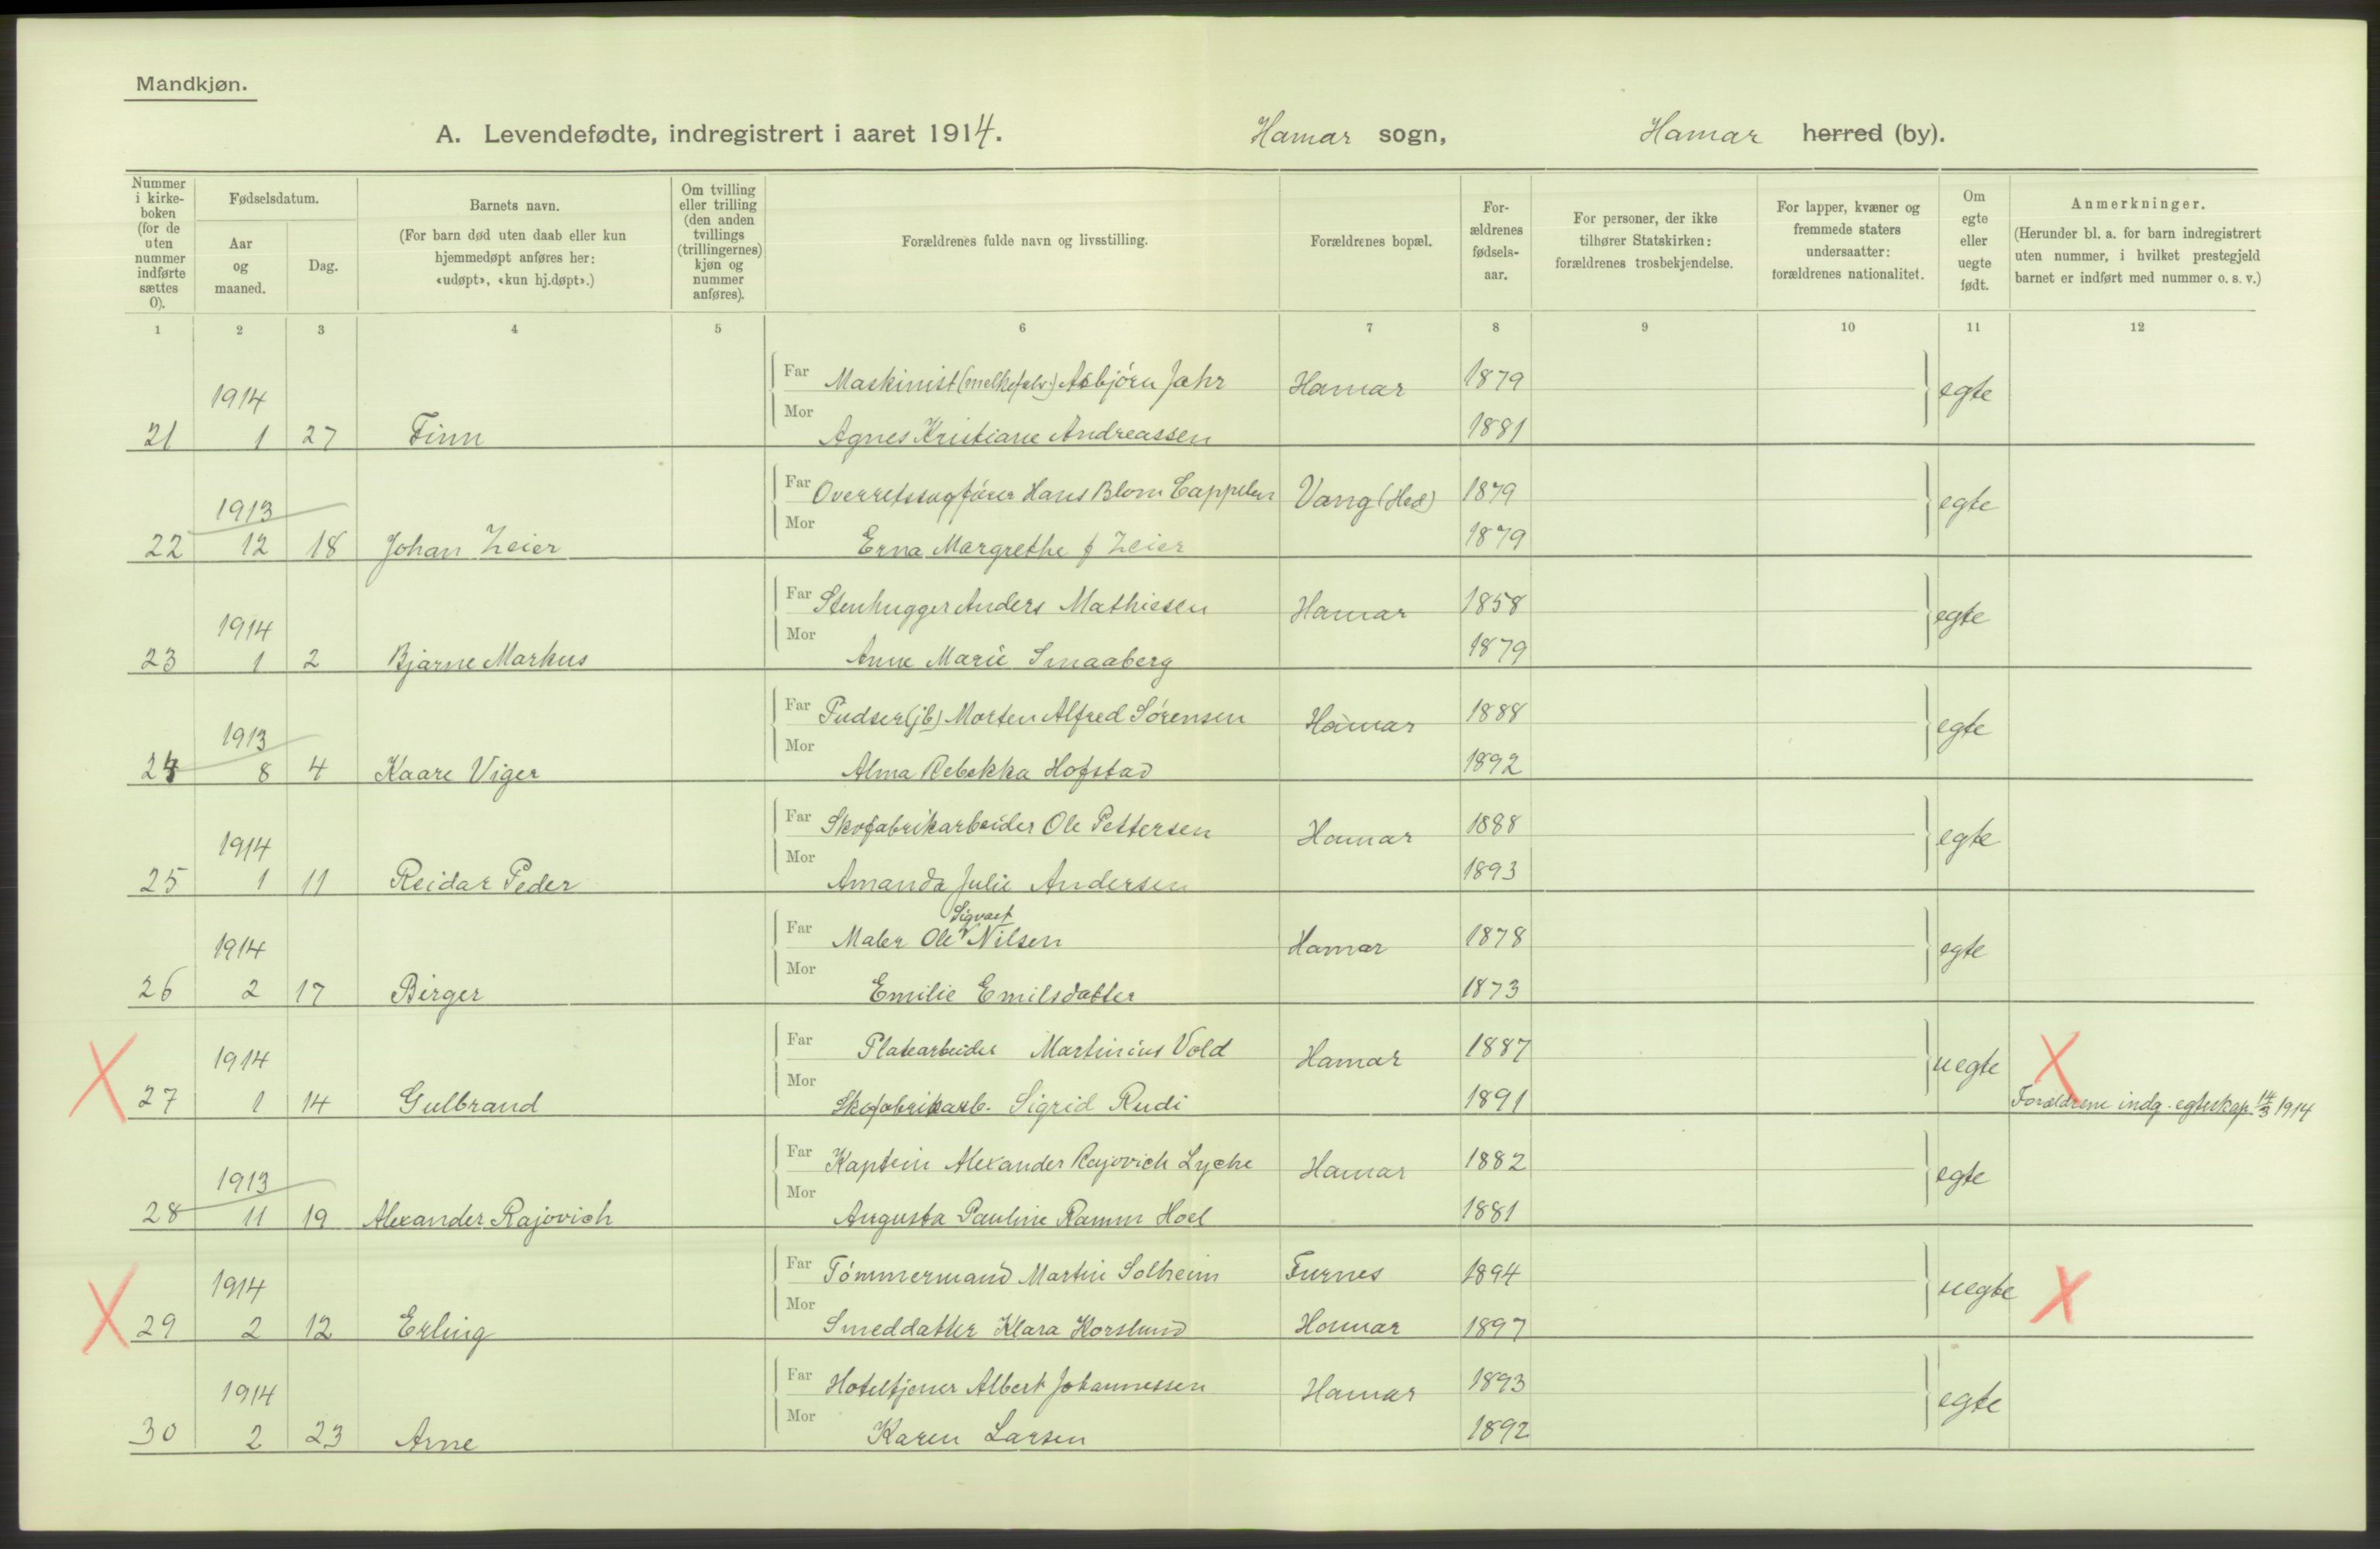 Mandkjøn.
A. Levendefødte, indregistrert i aaret 1914. Hamar sogn, Hamar herred (by).
Nummer i kirke-boken (for de uten nummer indførte sættes 0).
Fødselsdatum.
Aar og maaned.
Dag.
Barnets navn.
(For barn død uten daab eller kun hjemmedøpt anføres her: «udøpt», «kun hj.døpt».)
Om tvilling eller trilling (den anden tvillings (trillingernes) kjøn og nummer anføres).
Forældrenes fulde navn og livsstilling.
Forældrenes bopæl.
For-ældrenes fødsels-aar.
For personer, der ikke tilhører Statskirken: forældrenes trosbekjendelse.
For lapper, kvæner og fremmede staters undersaatter: forældrenes nationalitet.
Om egte eller uegte født.
Anmerkninger.
(Herunder bl. a. for barn indregistrert uten nummer, i hvilket prestegjeld barnet er indført med nummer o. s. v.)
1 2 3 4 5 6 7 8 9 10 11 12
1914 Far Maskinist (melkefalv.) Asbjørn Jahr Hamar 1879 egte
21 1 27 Finn Mor Agnes Kristiane Andreassen 1881
1913 Far Overretssagfører Hans Blom Cappelen Vang (Hed) 1879 egte
22 12 18 Johan Zeier Mor Erna Margrethe f Zeier 1879
1914 Far Stenhugger Anders Mathiesen Hamar 1858 egte
23 1 2 Bjarne Markus Mor Anne Marie Smaaberg 1879
1913 Far Pudser (jb) Morten Alfred Sørensen Hamar 1888 egte
24 8 4 Kaare Viger Mor Alma Rebekka Hofstad 1892
1914 Far Skofabrikarbeider Ole Pettersen Hamar 1888 egte
25 1 11 Reidar Peder Mor Amanda Julie Andersen 1893
1914 Far Maler Ole Sigvart Nilsen Hamar 1878 egte
26 2 17 Birger Mor Emilie Emilsdatter 1873
1914 Far Platearbeider Martinius Vold Hamar 1887 uegte X
X 27 1 14 Gulbrand Mor Skofabrikarb. Sigrid Rudi 1891 Forældrene indg. egteskap 14/3 1914
1913 Far Kaptein Alexander Rajovich Lyche Hamar 1882 egte
28 11 19 Alexander Rajovich Mor Augusta Pauline Ramm Hoel 1881
1914 Far Tømmermand Martin Solheim Furnes 1894 uegte X
X 29 2 12 Erling Mor Smeddatter Klara Horslund Hamar 1897
1914 Far Hoteltjener Albert Johannessen Hamar 1893 egte
30 2 23 Arne Mor Karen Larsen 1892